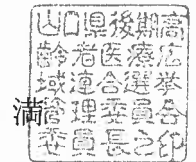 山口県後期高
齢者医療広
域連合選挙
管理委員会
委員長之印
満